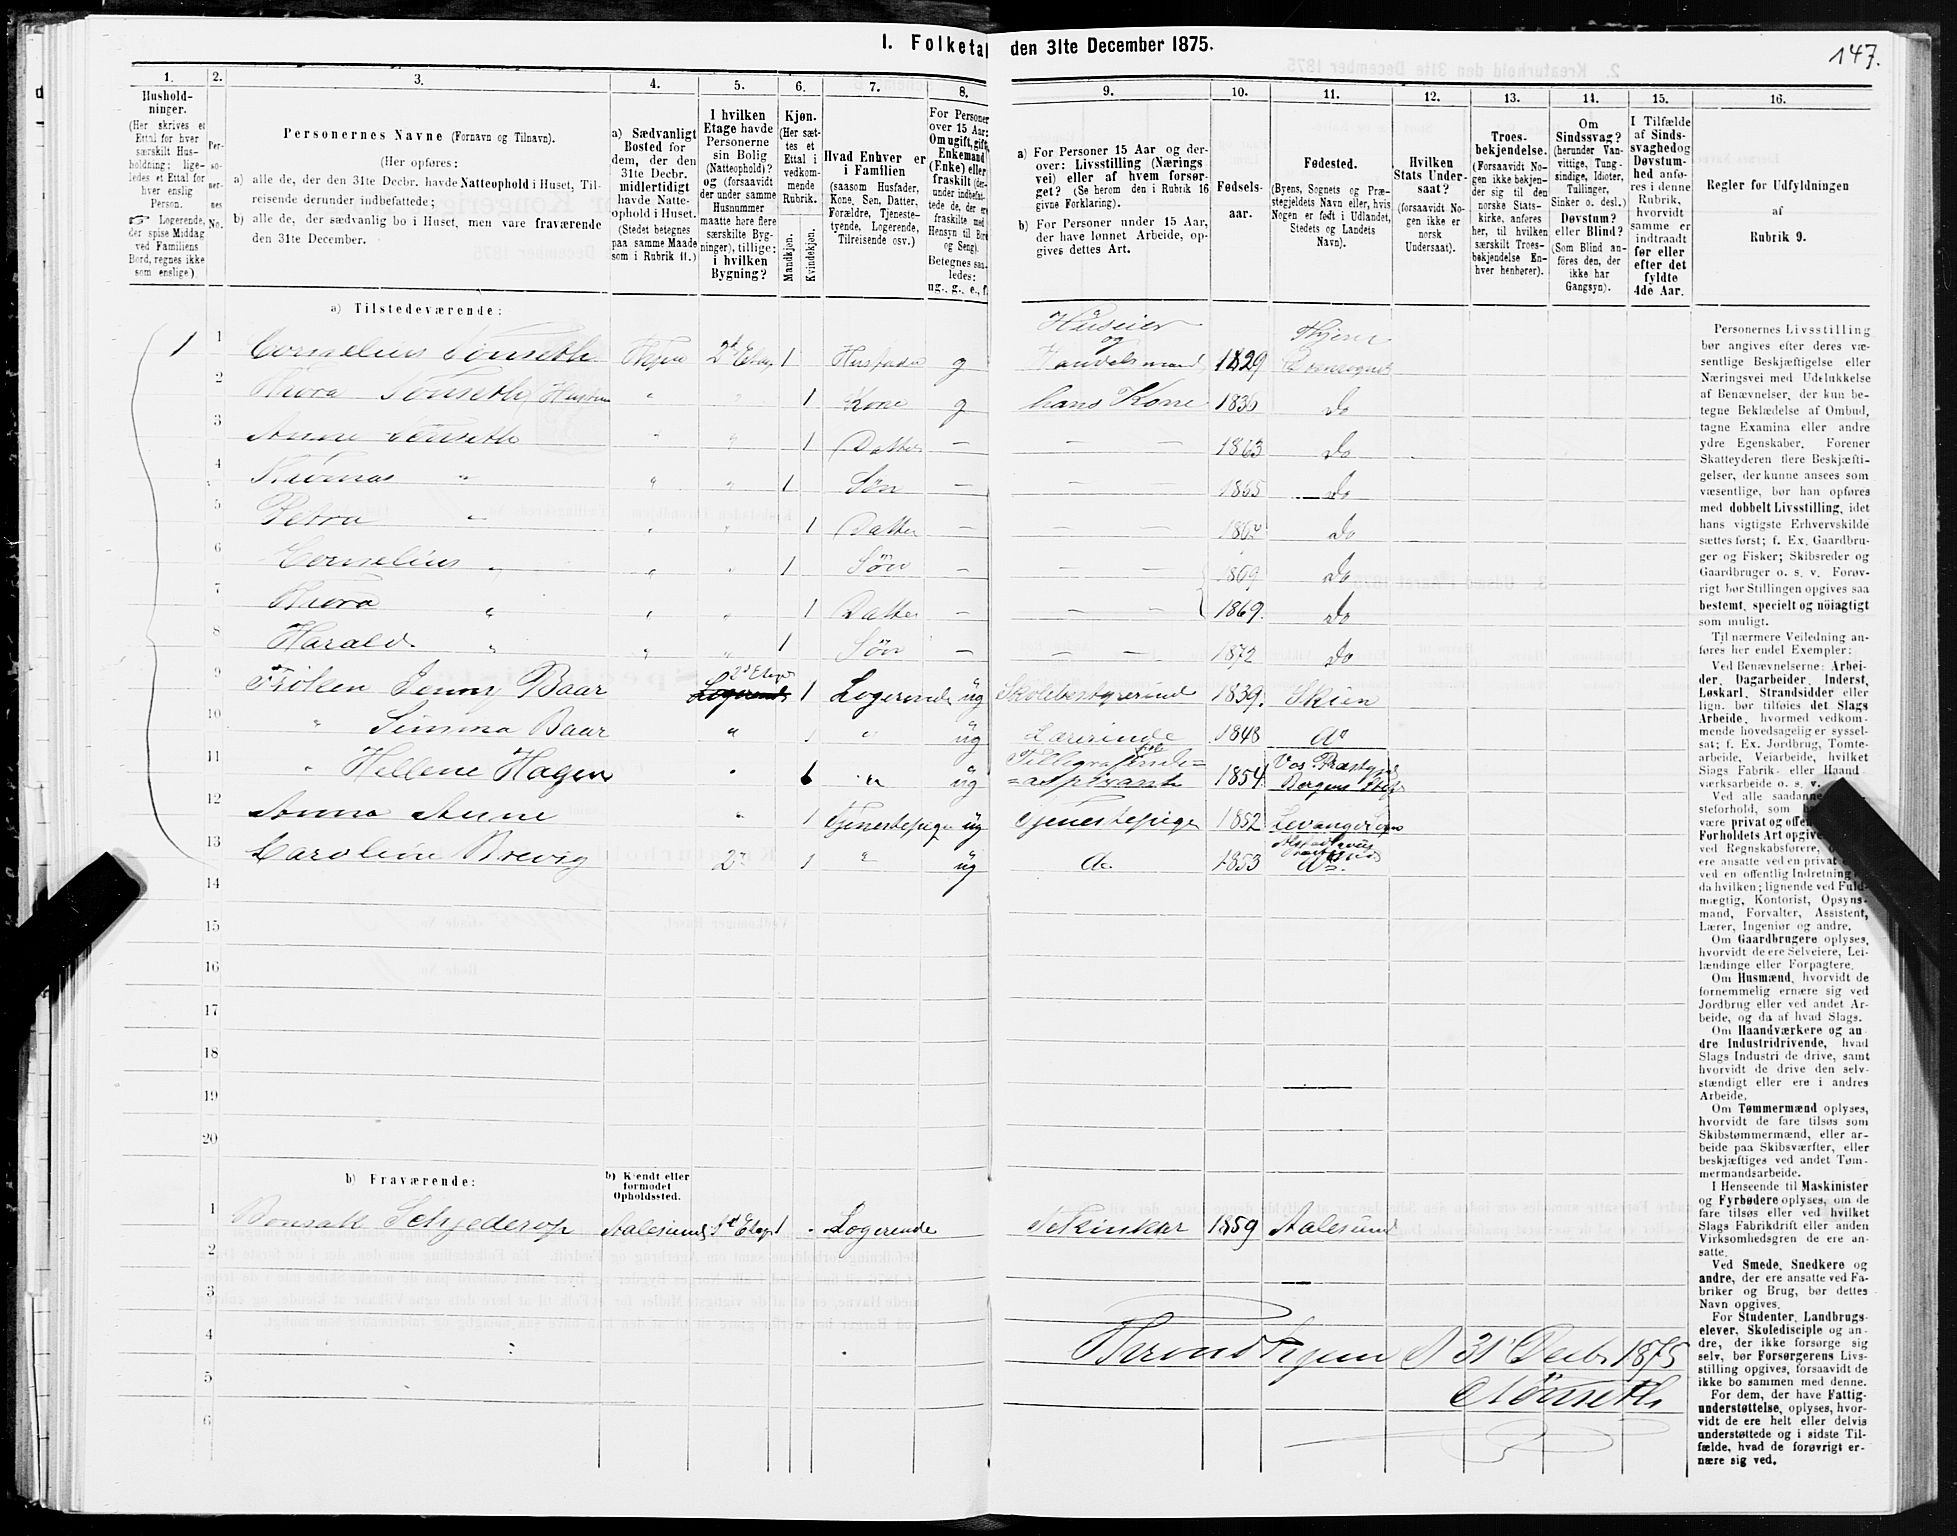 147.
I. Folketal den 31te December 1875.
1. 2. 3. 4. 5. 6. 7. 8. 9. 10. 11. 12. 13. 14. 15. 16.
Hushold-
ninger.
(Her skrives et
Ettal for hver
særskilt Hus-
holdning; lige-
ledes et Ettal for
hver enslig
Person.
☞ Logerende,
der spise Middag
ved Familiens
Bord, regnes ikke
som enslige).
Per-
so-
ner-
nes
No.
Personernes Navne (Fornavn og Tilnavn).
(Her opføres:
a) alle de, der den 31te Decbr. havde Natteophold i Huset, Til-
reisende derunder indbefattede;
b) alle de, der sædvanlig bo i Huset, men vare fraværende
den 31te December.
a) Sædvanligt
Bosted for
dem, der den
31te Decbr.
midlertidigt
havde Natte-
ophold i Huset.
(Stedet betegnes
paa samme Maade
som i Rubrik 11.)
I hvilken
Etage havde
Personerne
sin Bolig
(Natteophold)?
og (forsaavidt
der under samme
Husnummer
maatte høre flere
særskilte Byg-
ninger), tillige:
i hvilken
Bygning?
Kjøn.
(Her sæt-
tes et
Ettal i
vedkom-
mende
Rubrik.
Mandkjøn.
Kvindekjøn.
Hvad Enhver er
i Familien
(saasom Husfader,
Kone, Søn, Datter,
Forældre, Tjeneste-
tyende, Logerende,
Tilreisende osv.)
For Personer
over 15 Aar:
Om ugift, gift,
Enkemand
(Enke) eller
fraskilt (der-
under indbefat-
tede de, der ere
fraskilte med
Hensyn til Bord
og Seng).
Betegnes saa-
ledes:
ug., g., e., f.
a) For Personer 15 Aar og der-
over: Livsstilling (Nærings
vei) eller af hvem forsør-
get? (Se herom den i Rubrik 16
givne Forklaring).
b) For Personer under 15 Aar,
der have lønnet Arbeide, op-
gives dettes Art.
Fødsels-
aar.
Fødested.
(Byens, Sognets og Præ-
stegjeldets Navn eller, hvis
Nogen er født i Udlandet,
Stedets og Landets
Navn).
Hvilken
Stats Under-
saat?
(forsaavidt No-
gen ikke er
norsk
Undersaat).
Troes-
bekjendelse.
(Forsaavidt No-
gen ikke bekjen-
der sig til den
norske Stats-
kirke, anføres
her, til hvilken
særskilt Troes-
bekjendelse En-
hver henhører).
Om
Sindssvag?
(herunder Van-
vittige, Tung-
sindige, Idioter,
Tullinger,
Sinker o. desl.)
Døvstum?
eller Blind?
(Som Blind an-
føres den, der
ikke har
Gangsyn).
I Tilfælde
af Sinds-
svaghed og
Døvstum-
hed anfø-
res i denne
Rubrik,
hvorvidt
samme er
indtraadt
før eller
efter det
fyldte
4de Aar.
Regler for Udfyldningen
af
Rubrik 9.
a) Tilstedeværende:
1 1 Cornelius Tønseth Thjem 2d Etage 1 Husfader g Huseier og Handelsmand 1829 Thjem
2 Thora Tønseth Hustru " " 1 Kone g hans Kone 1836 Do
3 Anne Tønseth " " 1 Datter — — — 1863 Do
4 Thomas " " " 1 Søn — — 1865 Do
5 Petra " " " 1 Datter — — — Do
6 Cornelius " " " 1 Søn — — — 1869 Do
7 Thora " " " 1 Datter — — — 1869. Do
8 Harald " " " 1 Søn — — — 1872 Do
9 Frøken Jenny Baar 2d Etage 1 Logerende ug Skolebestyrerinde 1839. Skien
10 " Simma Baar " 1 " ug Lærerinde 1848 do
11 " Hellene Hagen " " ug 1854
12 Anna Aune " 1 Tjenestepige ug Tjenestepige 1852
13 Caroline Brevig 2" 1 " ug do 1853
14
15
16
17
18
19
20
b) Fraværende:
b) Kjendt eller
formodet
Opholdssted.
1 Schjederop Aalesund Etage 1 Logerende 1859 Aalesund
2
3
4
5
6
Throndhjem d 31 Decbr 1875
CTønseth
Personernes Livsstilling
bør angives efter deres væ-
sentlige Beskjæftigelse eller
Næringsvei med Udelukkelse
af Benævnelser, der kun be-
tegne Beklædelse af Ombud,
tagne Examina eller andre
ydre Egenskaber. Forener
Skatteyderen flere Beskjæfti-
gelser, der kunne ansees som
væsentlige, bør han opføres
med dobbelt Livsstilling, idet
hans vigtigste Erhvervskilde
sættes først; f. Ex. Gaardbru-
ger og Fisker; Skibsreder og
Gaardbruger o. s. v. Forøv-
rigt bør Stillingen opgives saa
bestemt, specielt og nöiagtigt
som muligt.
Til nærmere Veiledning an-
føres her endel Exempler:
Ved Benævnelserne: Arbei-
der, Dagarbeider, Inderst,
Løskarl, Strandsidder eller
lign. bør tilføies det Slags
Arbeide, hvormed vedkom-
mende hovedsagelig er syssel-
sat; f. Ex. Jordbrug, Tomte-
arbeide, Veiarbeide, hvilket
Slags Fabrik- eller Haand
værksarbeide o. s. v.
Ved alle saadanne
steforhold, som
være privat og offe
Forholdets Art opgives
ved Regnskabsførere,
ere ansatte ved en privat
ved en offentlig Indretning
da hvilken; lignende ved Fuld-
mægtig, Kontorist, Opsyns-
mand, Forvalter, Assistent,
Lærer, Ingeniør og andre.
Om Gaardbrugere oplyses,
hvorvidt de ere Selveiere, Lei-
lændinge eller Forpagtere.
Om Husmænd, hvorvidt de
fornemmelig ernære sig ved
Jordbrug eller ved andet Ar-
beide, og da af hvad Slags.
Om Haandværkere og an
dre Industridrivende, hvad
Slags Industri de drive, samt
hvorvidt de drive den selv-
stændigt eller ere i andres
Arbeide.
Om Tømmermænd oplyses,
hvorvidt de fare tilsøs som
Skibstømmermænd, eller ar-
beide paa Skibsværfter, eller
beskjæftiges ved andet Tøm-
mermandsarbeide.
I Henseende til Maskinister
og Fyrbødere oplyses, om de
fare tilsøs eller ved hvilket
Slags Fabrikdrift eller anden
Virksomhedsgren de ere an-
satte.
Ved Smede, Snedkere og
andre, der ere ansatte ved Fa-
briker og Brug, bør dettes
Navn opgives.
For Studenter, Landbrugs-
elever, Skoledisciple og an-
dre, der ikke forsørge sig
selv, bør Forsørgerens Livs-
stilling opgives, forsaavidt de
ikke bo sammen med denne.
For dem, der have Fattig-
understøttelse, oplyses, hvor-
vidt de ere helt eller delvis
understøttede og i sidste Til-
fælde, hvad de forøvrigt er-
nære sig ved.